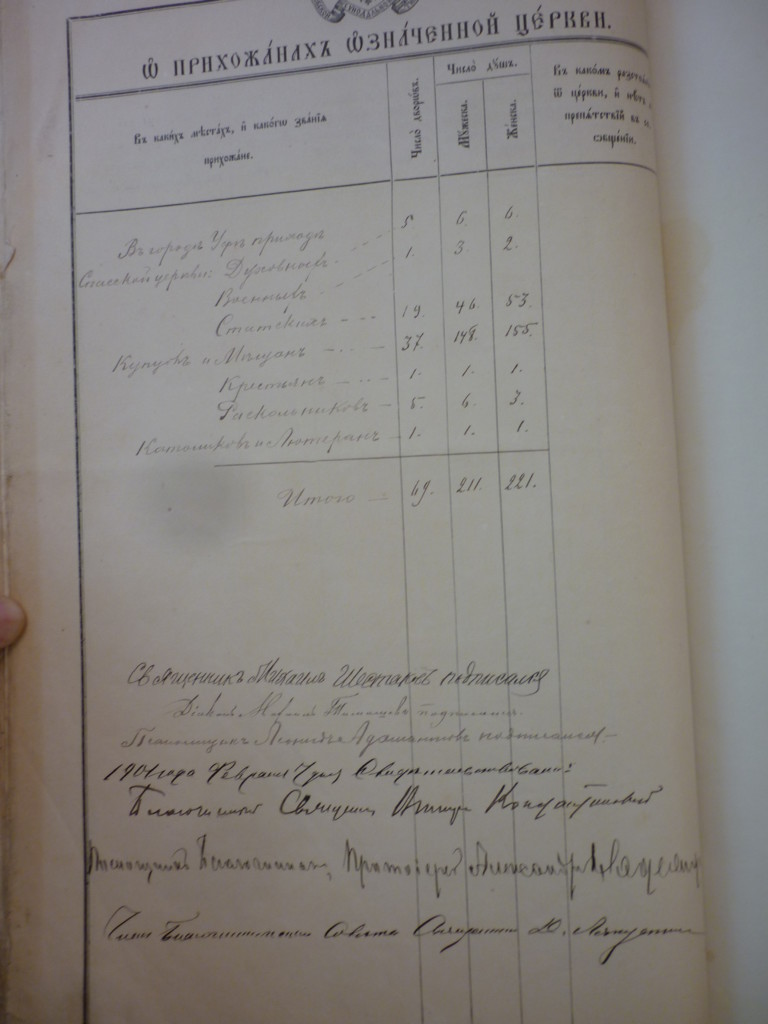 Ѿ ПРИХОЖА́НАХЪ Ѡ҆ЗНА́ЧЕННОЙ ЦЕ́РКВИ.
Въ каки́хъ мѣста́хъ, и҆ како́гѡ зва́нїѧ прихожа́не.
Число̀ дворѡ́въ.
Число̀ дꙋ́шъ.
Мꙋ́жеска.
Же́нска.
Въ како́мъ
ѿ це́ркви, и҆ нѣ́тъ
препѧ́тствїй въ
собра́нїи.
Въ городѣ Уфѣ приходѣ
Спасской церкви: Духовныхъ 5 6. 6.
Военныхъ 1. 3. 2.
Статскихъ 19. 46. 53.
Купцовъ и Мѣщанъ 37. 148. 155.
Крестьянъ 1. 1. 1.
Раскольниковъ 5. 6. 3.
Католиковъ и Лютеранъ 1. 1. 1.
Итого 69. 211. 221.
Священникъ Михаилъ Шестаковъ подписался
подписался.
Псаломщикъ Леонидъ Адамантовъ подписался
1901 года Февраля 7 дня Свидѣтельствовали:
Благочинный Священникъ Викторъ Константиновскій
Помощникъ Благочиннаго, Протоіерей Александръ
Членъ Благочинническаго Совѣта Священникъ